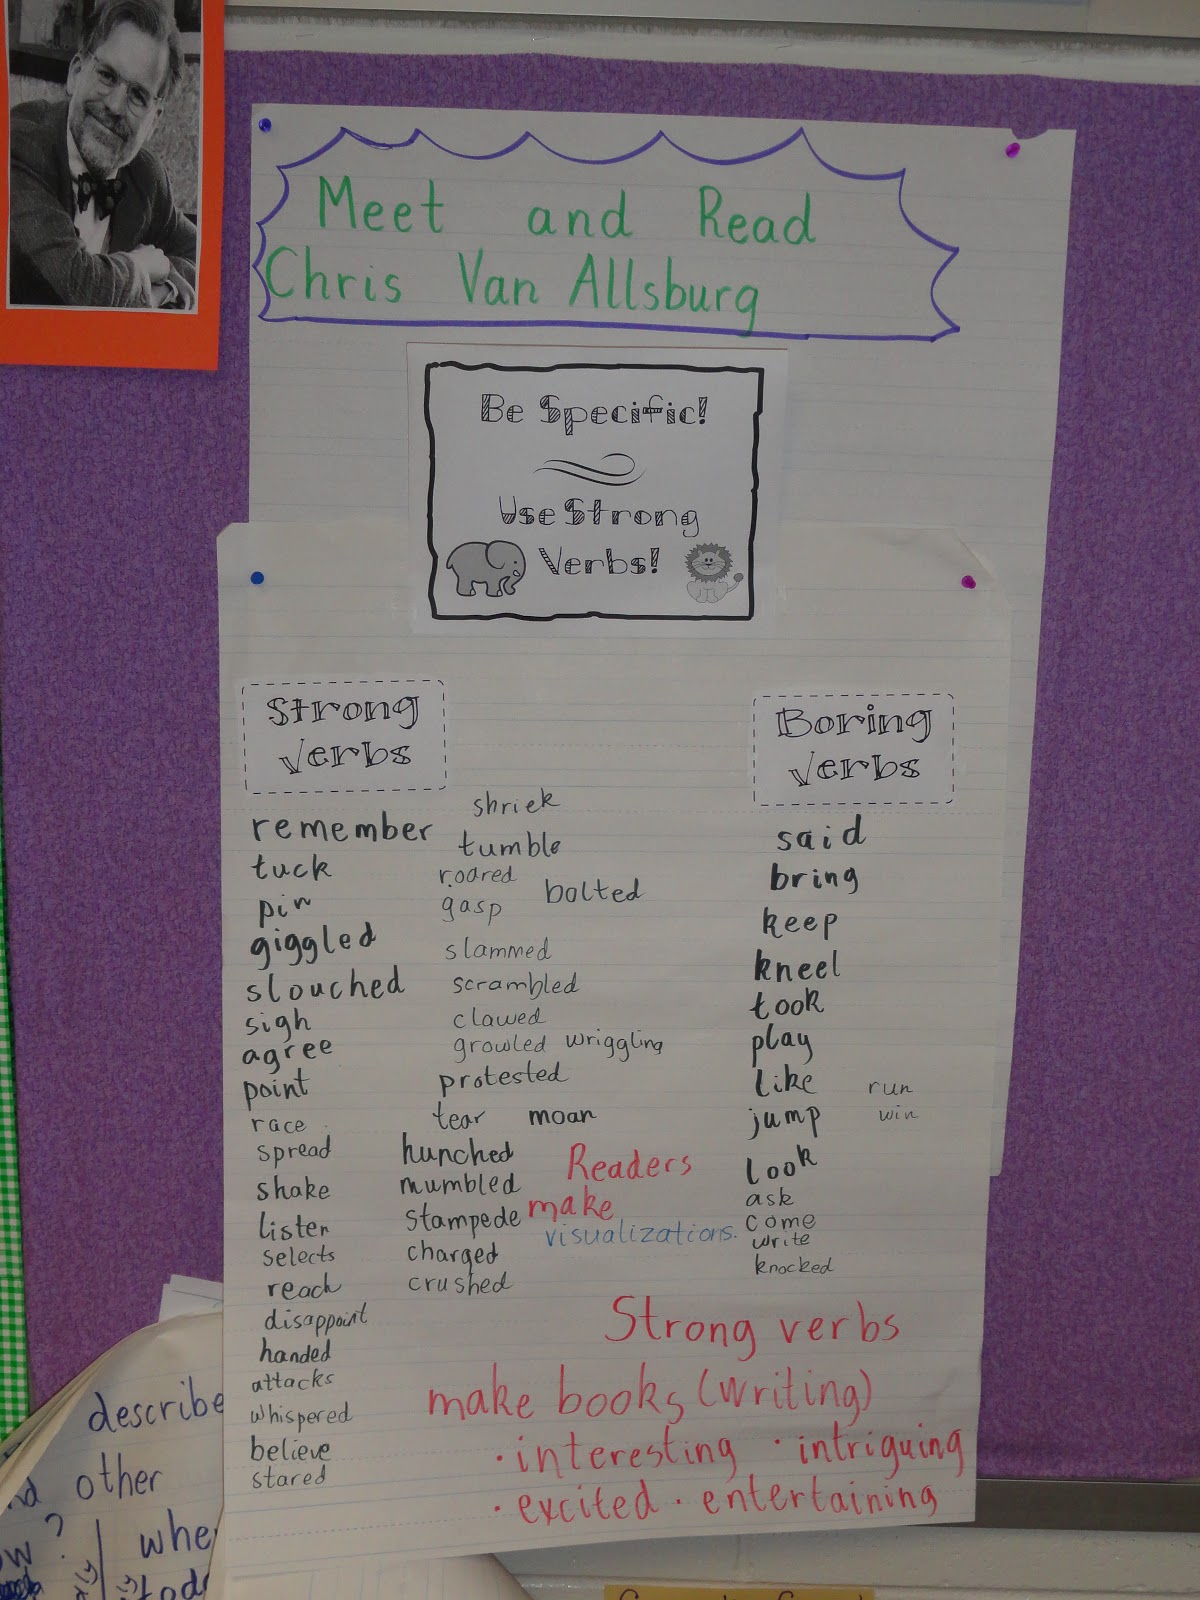 Meet and Read
Chris Van Allsburg
Be Specific!
Use Strong
Verbs!
Strong
Verbs
remember
tuck
pin
giggled
slouched
sigh
agree
point
race
spread
shake
listen
selects
reach
disappoint
handed
attacks
whispered
believe
stared
shriek
tumble
roared
gasp
bolted
slammed
scrambled
clawed
growled wriggling
protested
tear moan
hunched
mumbled
stampede
charged
crushed
Boring
Verbs
said
bring
keep
kneel
took
play
like
jump
look
ask
come
write
knocked
run
win
Readers
make
visualizations.
Strong verbs
make books (writing)
• interesting • intriguing
• excited • entertaining
describe
other
?